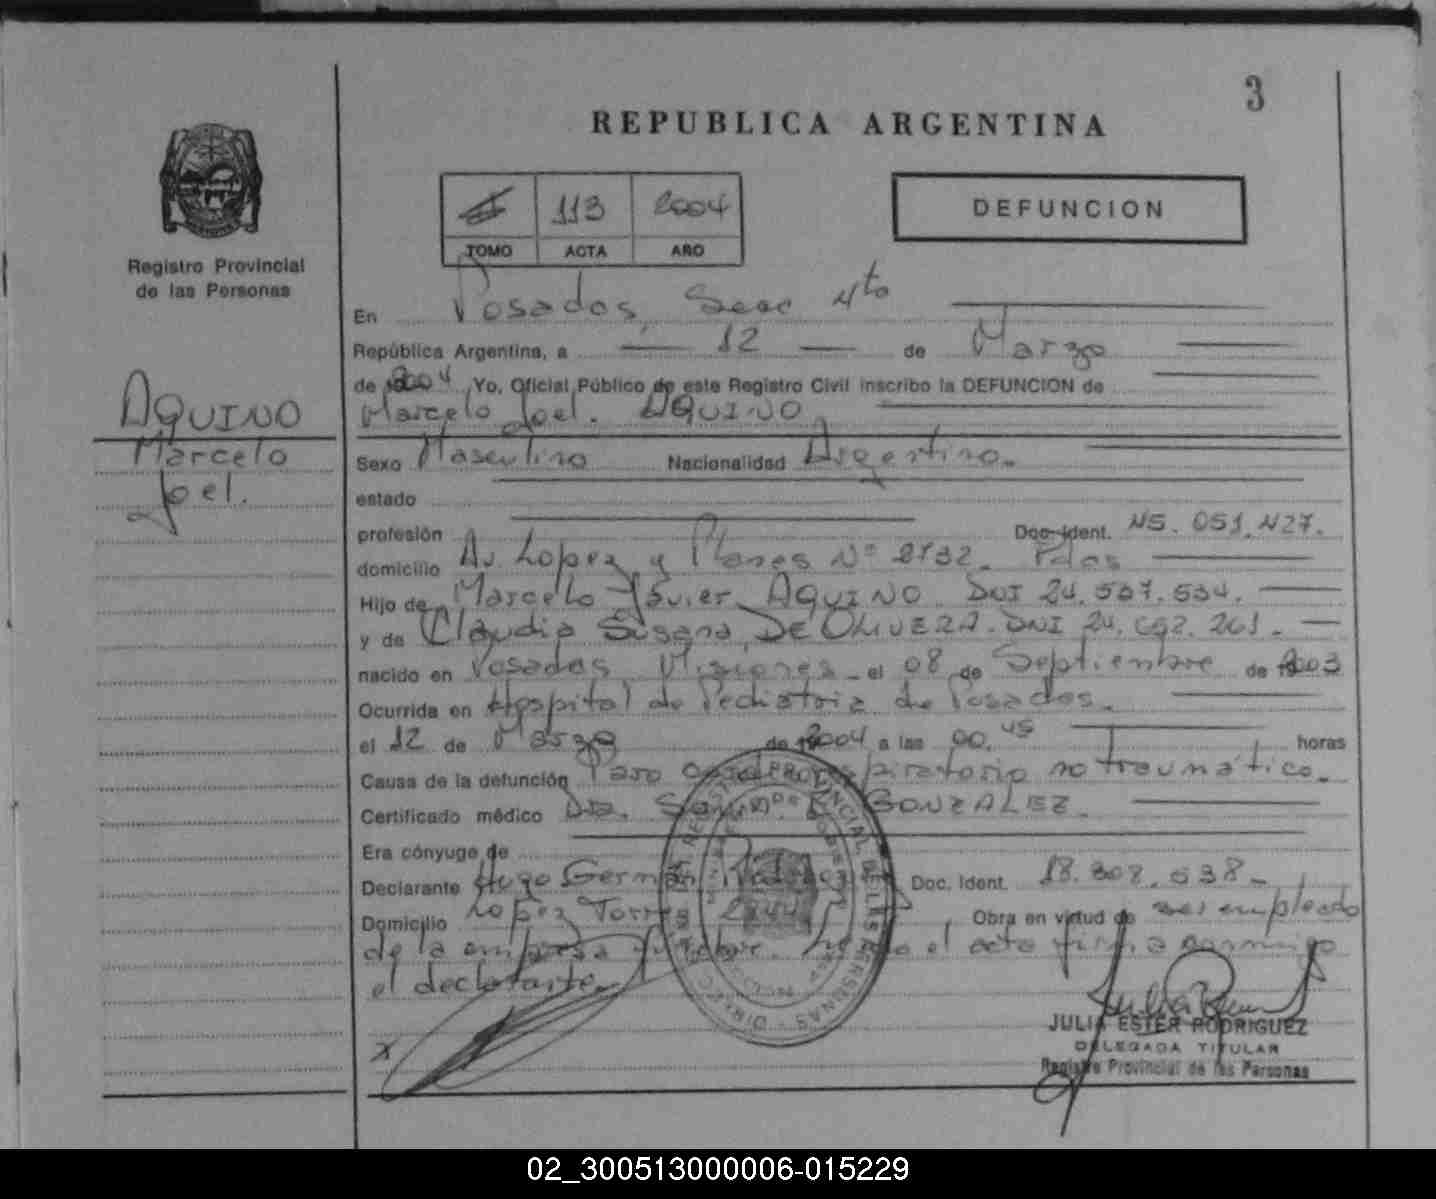 3
REPUBLICA ARGENTINA
113 2004
TOMO ACTA AÑO
DEFUNCION
Registro Provincial
de las Personas
AQUINO
Marcelo
Joel.
En Posadas, Secc 4to
República Argentina, a 12 de Marzo
de 2004 Yo, Oficial Público de este Registro Civil inscribo la DEFUNCION de
Marcelo Joel. AQUINO
Sexo Masculino Nacionalidad Argentino.
estado
profesión Doc. Ident. 45.051.427.
domicilio Av. Lopez y Planes Nº 2732. Pdas
Hijo de Marcelo Javier AQUINO DNI 24.537.534.
y de Claudia Susana DE OLIVERA. DNI 24. 261.
nacido en Posadas Misiones el 08 de Septiembre de 2003
Ocurrida en Hospital de Pediatria de Posadas.
el 12 de Marzo de 2004 a las 00.45 horas
Causa de la defunción Paro cardiorrespiratorio no traumático.
Certificado médico Dra. GONZALEZ.
Era cónyuge de
Declarante Hugo German Doc. Ident. 18.308.538
Domicilio Lopez Torres Obra en virtud de ser empleado
de la empresa el acta firma conmigo
el declarante.
X
JULIA ESTER RODRIGUEZ
DELEGADA TITULAR
Registro Provincial de las Personas
02_300513000006-015229